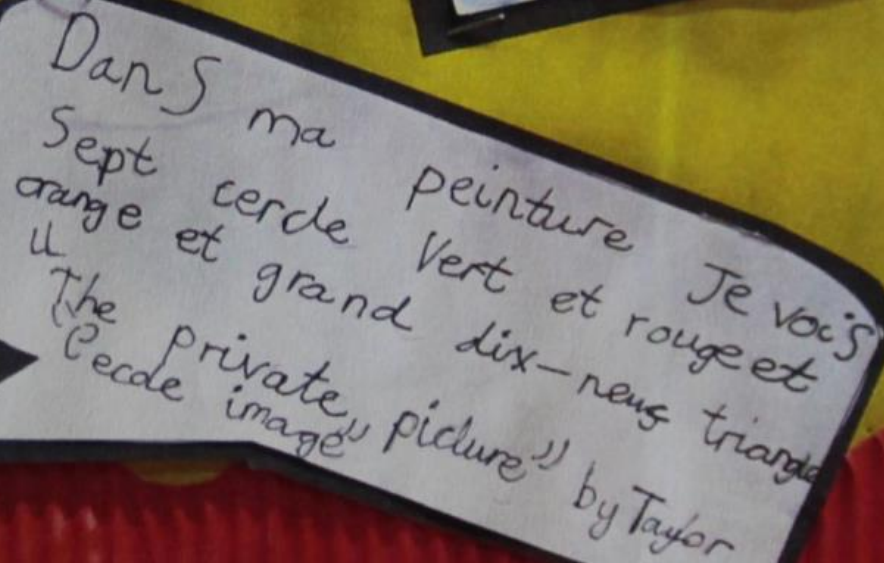 Dans ma peinture Je vois
Sept cercle Vert et rouge et
orange et grand dix-neuf triangle
"The private picture" by Taylor
"l'ecole image"